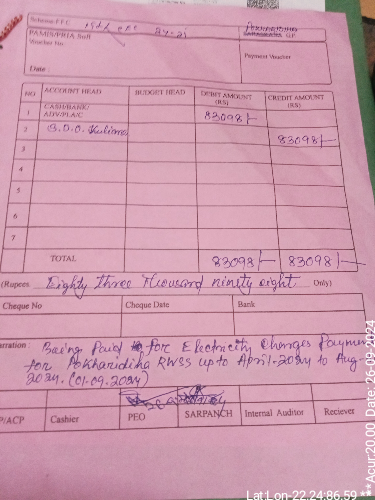 Scheme FFC 15th CFC 24-25
POKHARIDIHA
G.P.
PAMIS/PRIA Soft
Voucher No.
Payment Voucher
Date :
NO ACCOUNT HEAD BUDGET HEAD DEBIT AMOUNT (RS) CREDIT AMOUNT (RS)
1 CASH/BANK/ ADV/PLA/C 83098/-
2 B.D.O. Kuliana 83098/-
3
4
5
6
7
TOTAL 83098/- 83098/-
(Rupees Eighty Three Thousand ninity eight Only)
Cheque No Cheque Date Bank
rration : Being Paid for Electricity Charges Payment
for Pokharidiha RWSS up to April-2024 to Aug-
2024. (01.09.2024)
P/ACP Cashier PEO SARPANCH Internal Auditor Reciever
Lat:Lon-22.24:86.59 ***Acur:20.00 Date: 26-09-2024